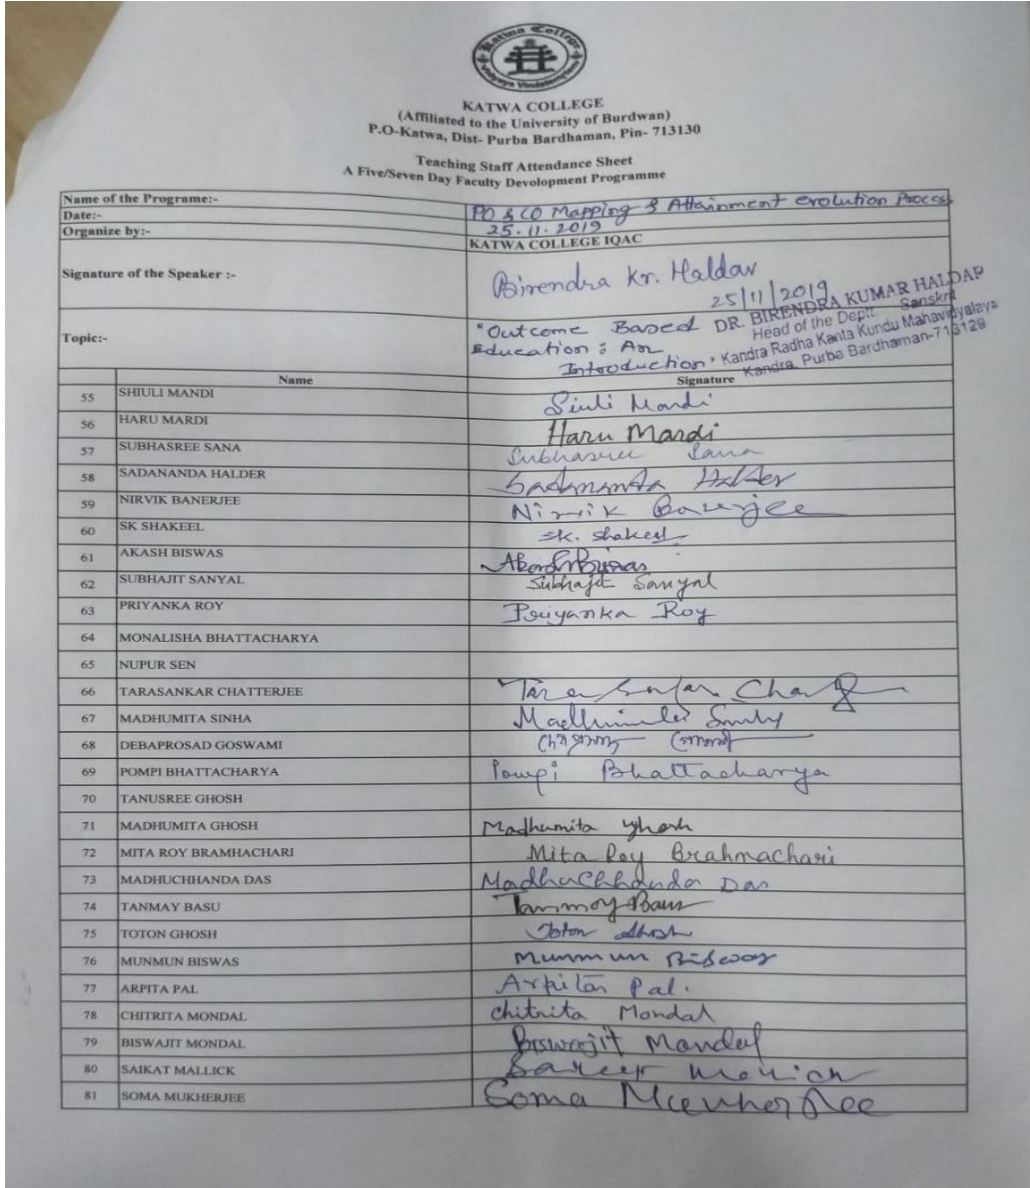 Katwa College
Vidyaya Vindateamritam
KATWA COLLEGE
(Affiliated to the University of Burdwan)
P.O-Katwa, Dist- Purba Bardhaman, Pin- 713130
Teaching Staff Attendance Sheet
A Five/Seven Day Faculty Devolopment Programme
Name of the Programe:- PO & CO Mapping & Attainment evolution Process
Date:- 25.11.2019
Organize by:- KATWA COLLEGE IQAC
Signature of the Speaker :- Birendra Kr. Haldar
25/11/2019
DR. BIRENDRA KUMAR HALDAR
Head of the Deptt. Sanskrit
Kandra Radha Kanta Kundu Mahavidyalaya
Kandra, Purba Bardhaman-713129
Topic:- "Outcome Based
Education : An
Introduction"
Name Signature
55 SHIULI MANDI Siuli Mandi
56 HARU MARDI Haru Mardi
57 SUBHASREE SANA Subhasree Sana
58 SADANANDA HALDER Sadananda Halder
59 NIRVIK BANERJEE Nirvik Banerjee
60 SK SHAKEEL SK. Shakeel
61 AKASH BISWAS Akash Biswas
62 SUBHAJIT SANYAL Subhajit Sanyal
63 PRIYANKA ROY Priyanka Roy
64 MONALISHA BHATTACHARYA
65 NUPUR SEN
66 TARASANKAR CHATTERJEE
67 MADHUMITA SINHA
68 DEBAPROSAD GOSWAMI
69 POMPI BHATTACHARYA Pompi Bhattacharya
70 TANUSREE GHOSH
71 MADHUMITA GHOSH Madhumita Ghosh
72 MITA ROY BRAMHACHARI Mita Roy Brahmachari
73 MADHUCHHANDA DAS Madhuchhanda Das
74 TANMAY BASU Tanmoy Basu
75 TOTON GHOSH Toton Ghosh
76 MUNMUN BISWAS Munmun Biswas
77 ARPITA PAL Arpita Pal.
78 CHITRITA MONDAL Chitrita Mondal
79 BISWAJIT MONDAL Biswajit Mondal
80 SAIKAT MALLICK
81 SOMA MUKHERJEE Soma Mukherjee